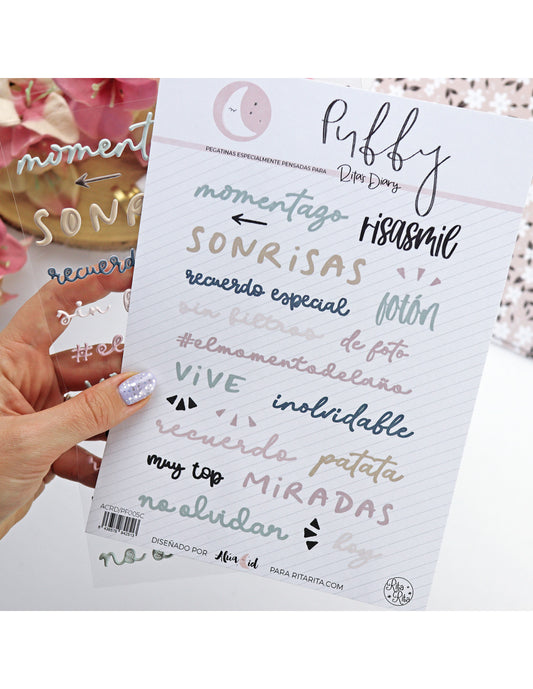 Puffy
PEGATINAS ESPECIALMENTE PENSADAS PARA
Rita's Diary
momentazo
risasmil
SONRISAS
recuerdo especial
fotón
sin filtros
de foto
#elmomentodelaño
VIVE
inolvidable
recuerdo
patata
muy top
MIRADAS
no olvidar
hoy
ACRD/PE005C
DISEÑADO POR
PARA RITARITA.COM
Rita
Rita
moment
SONR
recuerdo
sin
#el
no o